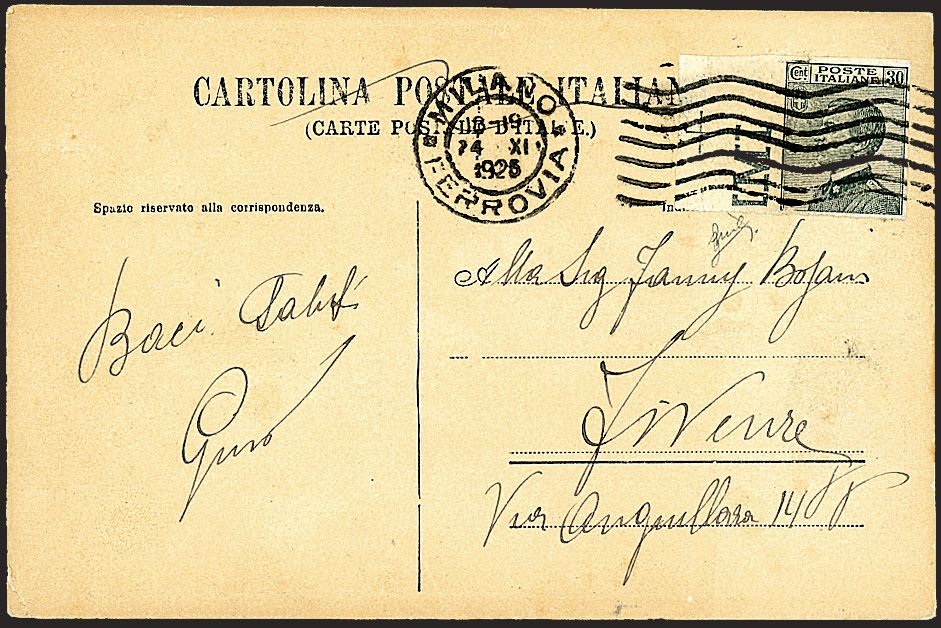 CARTOLINA POSTALE ITALIAN
(CARTE POSTALE D'ITALIE.)
MILANO
18-19
24 XI
1925
FERROVIA
Cent
POSTE
ITALIANE
30
Spazio riservato alla corrispondenza.
Alla Sig Fanny
Firenze
Via Anguillara 14
Baci Saluti
Gino